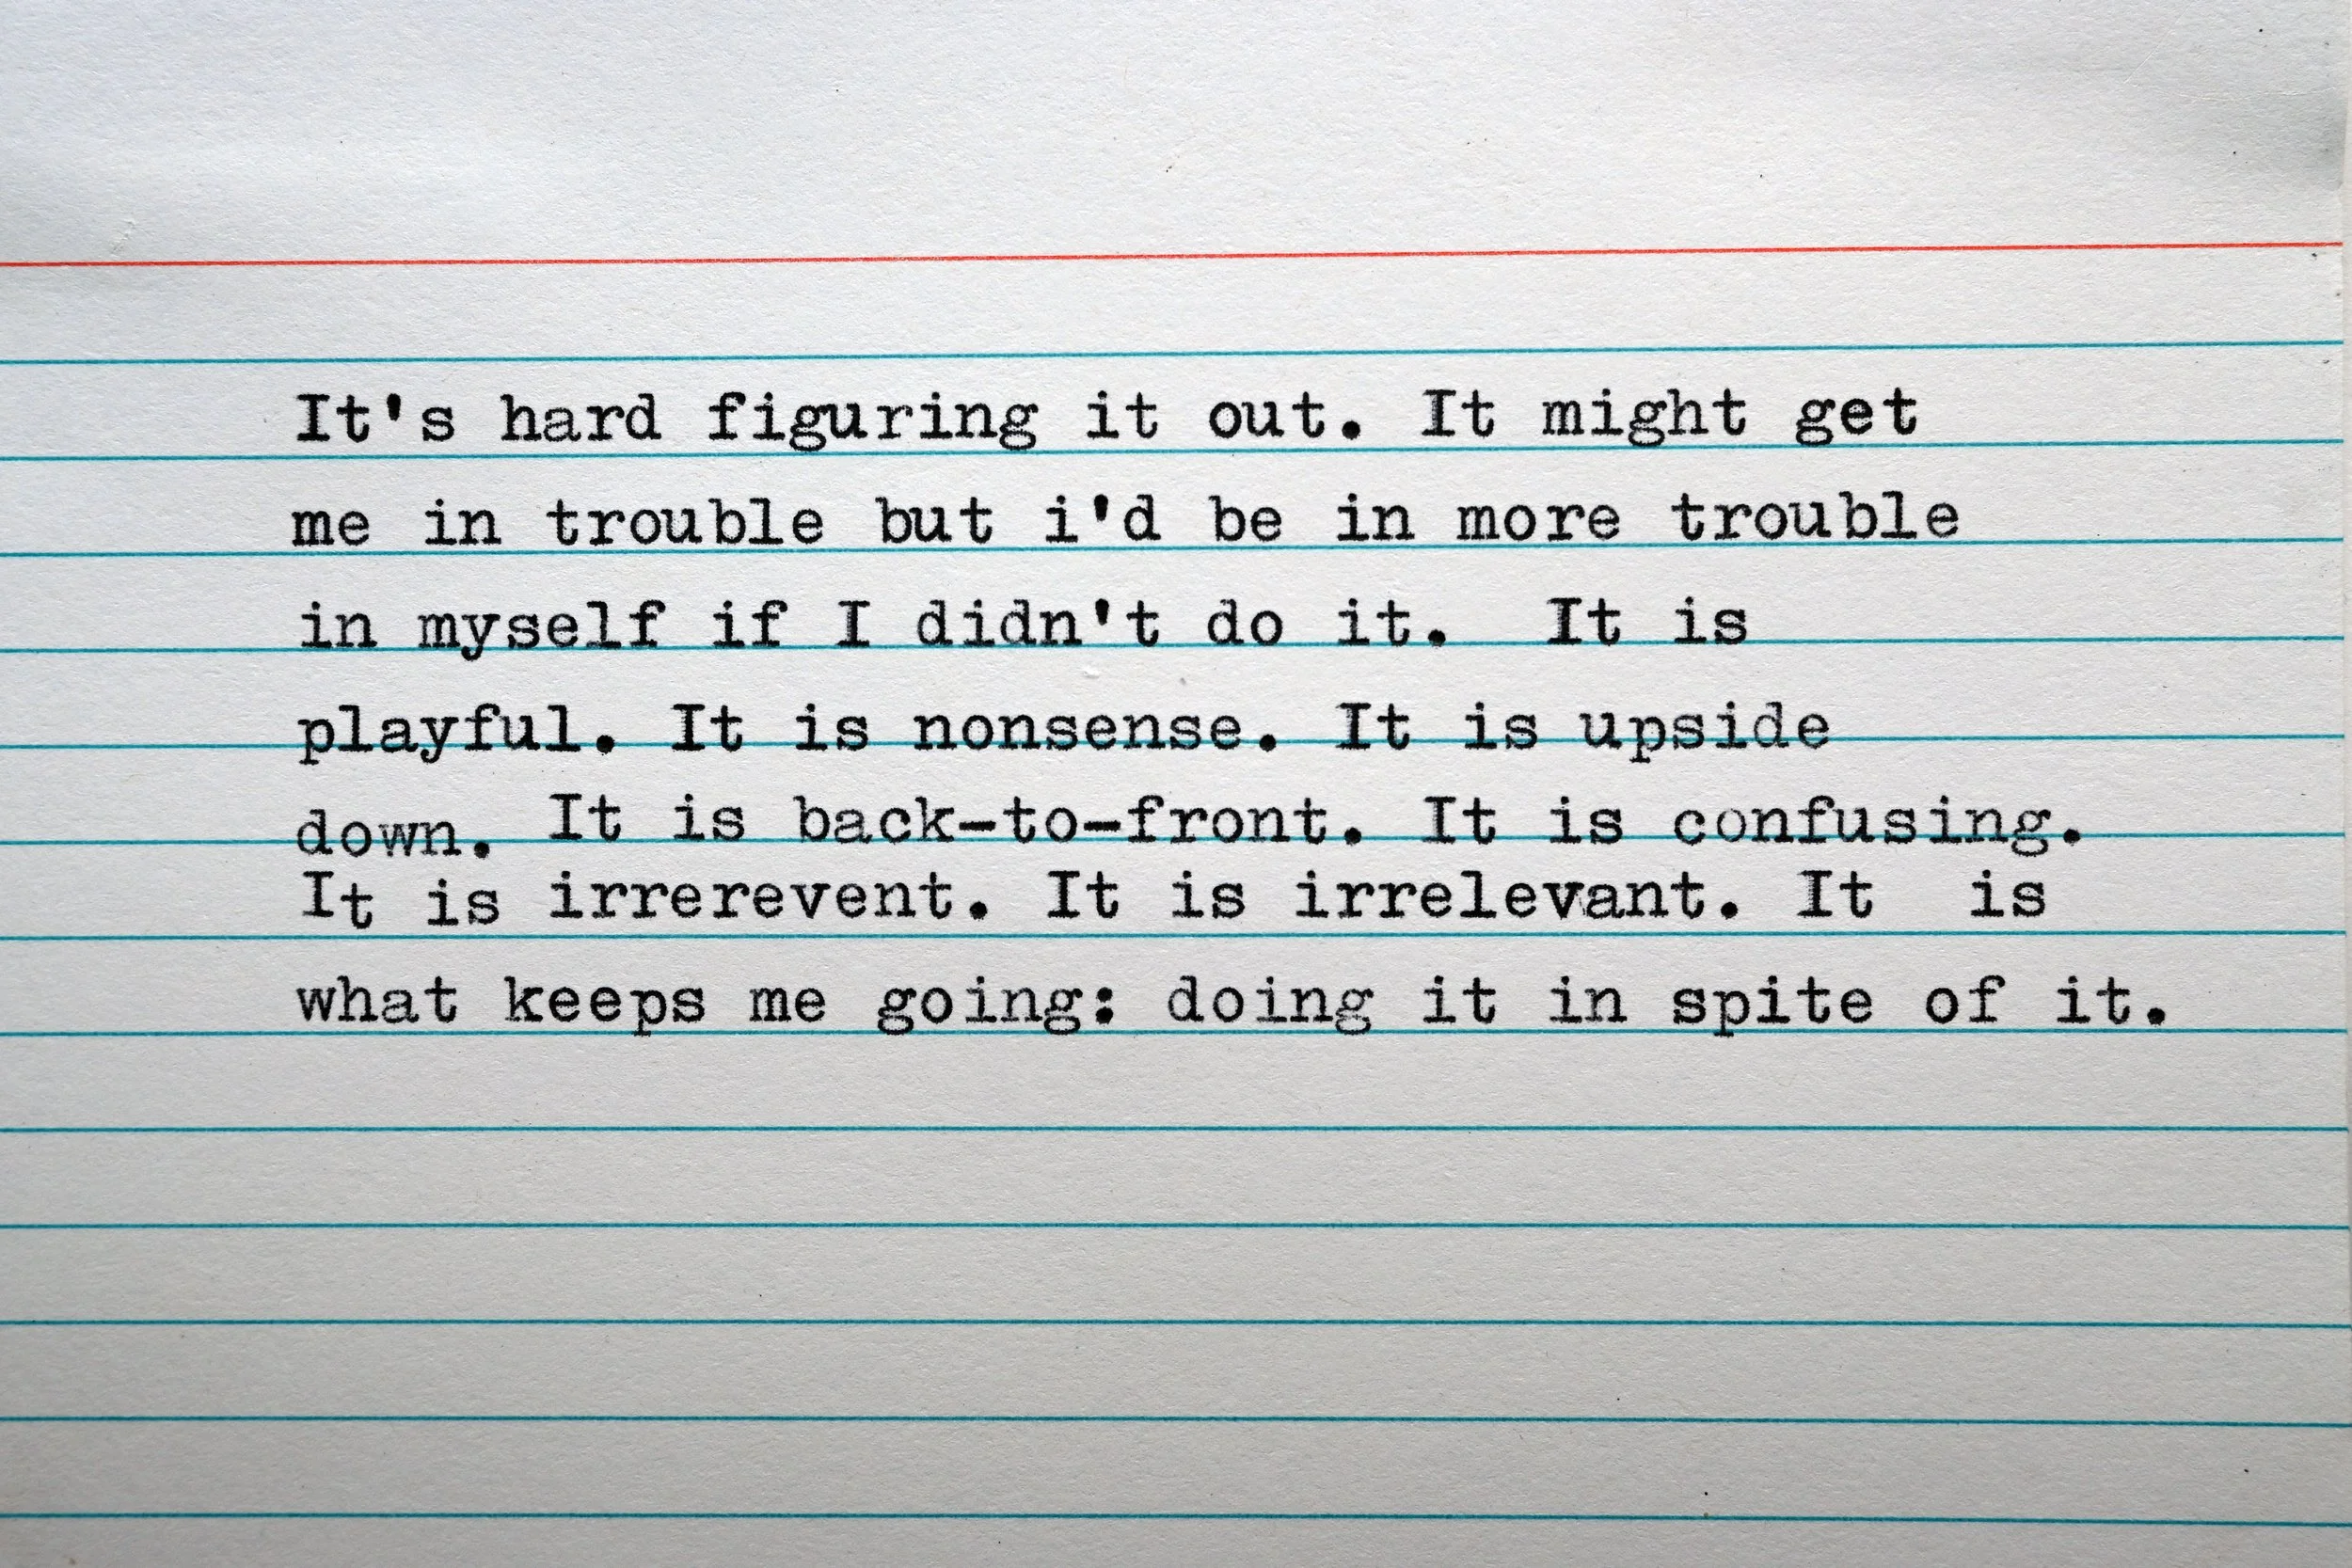 It's hard figuring it out. It might get
me in trouble but i'd be in more trouble
in myself if I didn't do it.  It is
playful. It is nonsense. It is upside
down. It is back-to-front. It is confusing.
It is irrerevent. It is irrelevant. It  is
what keeps me going: doing it in spite of it.